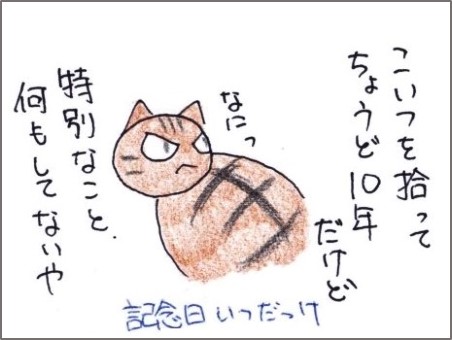 こいつを拾って
ちょうど10年
だけど
なにっ
特別なこと
何もしてないや
記念日いつだっけ